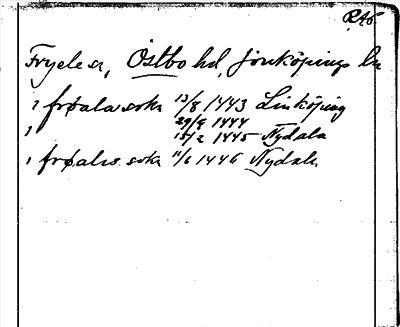 RAÖ
Fryele sn, Östbo hd, Jönköpings län
i frøala sokn 13/8 1443 Linköping
29/9 1444
i 15/2 1445 Nydala
i frøales sokn 11/6 1446 Nydala